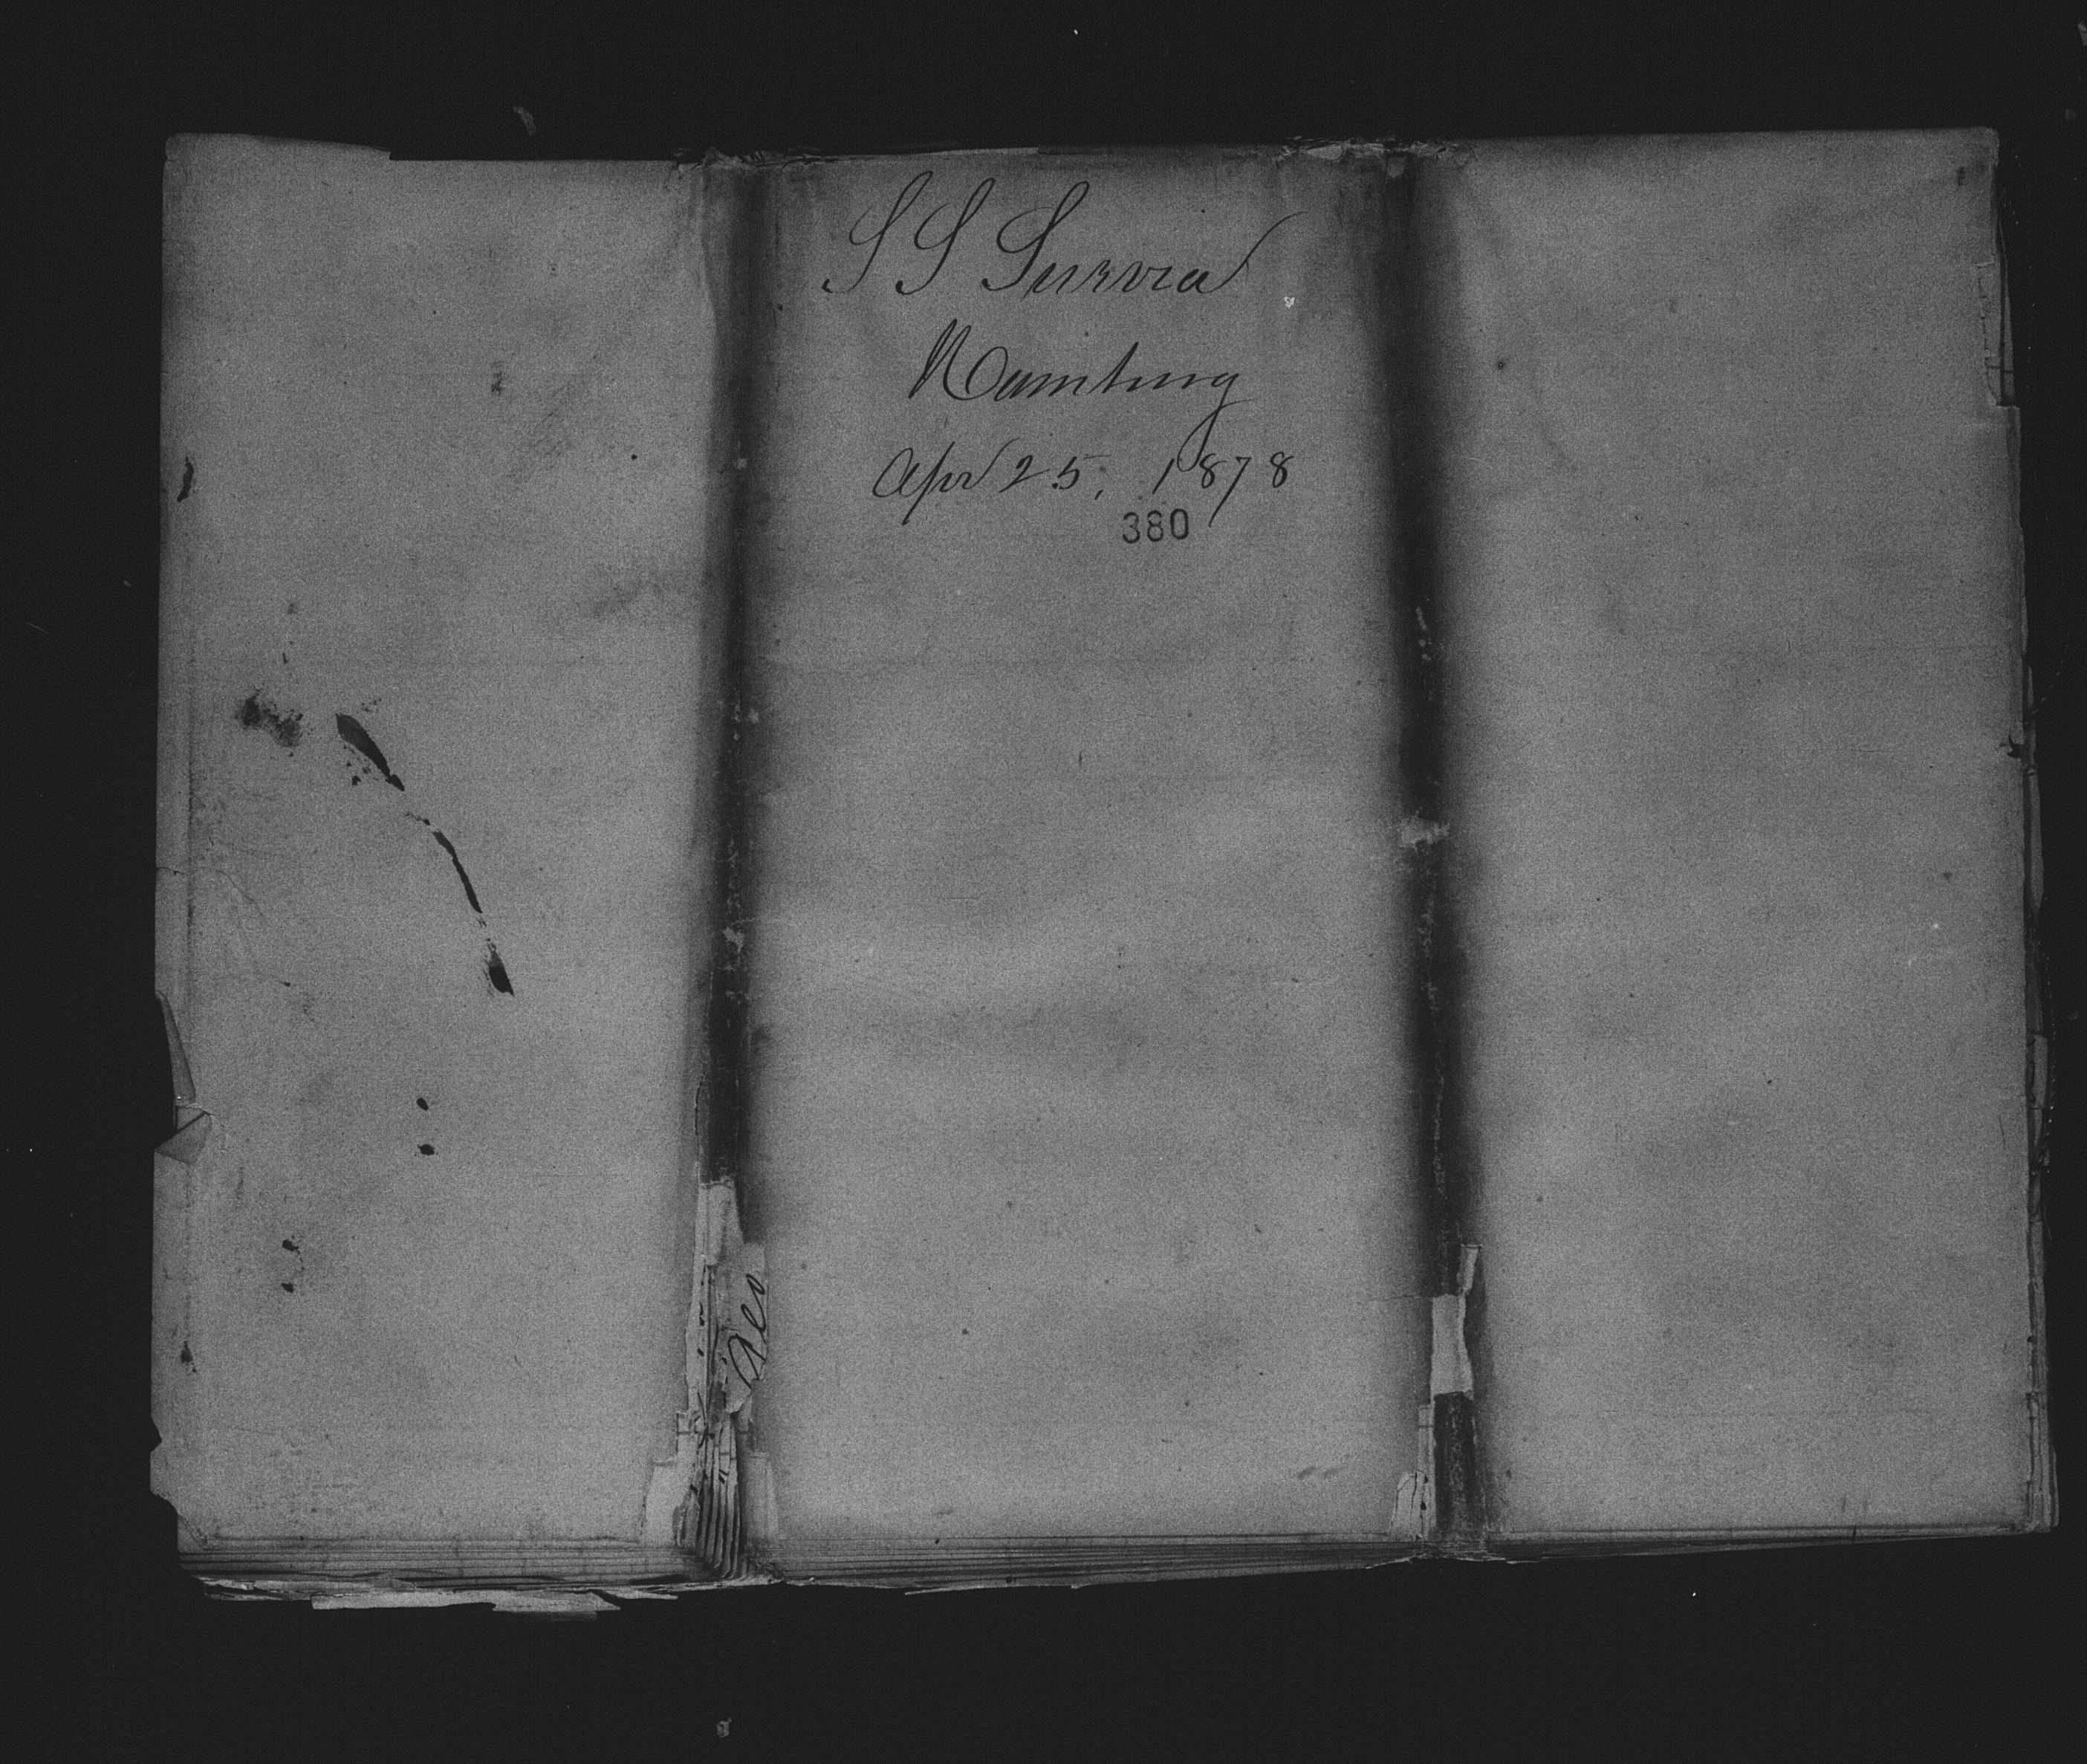 S S Suevia
Hamburg
Apr 25, 1878
380